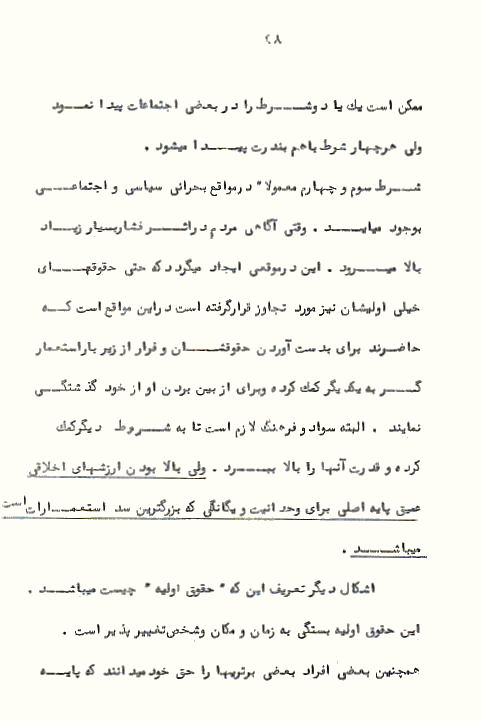 ۲۸
ممکن است یك یا دوشــرط را در بعضی اجتماعات پیدا نمــود
ولی هرچهار شرط باهم بندرت پیــدا میشود .
شــرط سوم و چهارم معمولا" درمواقع بحرانی سیاسی و اجتماعــی
بوجود میایــد . وقتی آگاهی مردم دراثــر فشاربسیار زیــاد
بالا میــرود . این درموقعی ایجاد میگردد که حتی حقوقهــای
خیلی اولیشان نیز مورد تجاوز قرارگرفته است دراین مواقع است کــه
حاضــرند برای بدست آوردن حقوقشــان و فرار از زیر باراستعمار
گــر به یکدیگر کمك کرده وبرای از بین بردن او از خود گذشتگــی
نمایند . البته سواد و فرهنگ لازم است تا به شــروط دیگرکمك
کرده و قدرت آنها را بالا ببــرد . ولی بالا بودن ارزشهای اخلاقی
عمیق پایه اصلی برای وحدانیت و یگانگی که بزرگترین سد استعمــارات است
میباشــد .
اشکال دیگر تعریف این که " حقوق اولیه " چیست میباشــد .
این حقوق اولیه بستگی به زمان و مکان وشخص تغییر پذیر است .
همچنین بعضی افراد بعضی برتریها را حق خود میدانند که پایــه